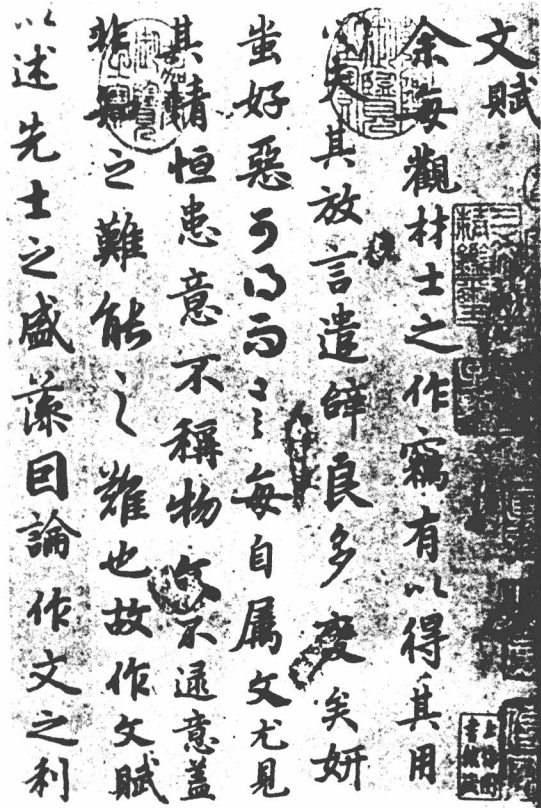 文賦
余每觀材士之作竊有以得其用
心夫其放言遣辭良多變矣妍
蚩好惡可得而言每自屬文尤見
其情恒患意不稱物文不逮意蓋
非知之難能之難也故作文賦
以述先士之盛藻因論作文之利